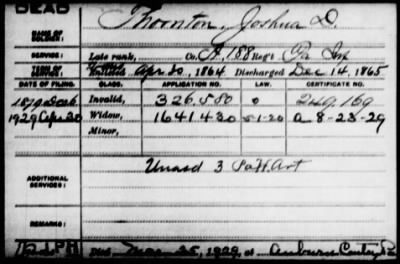 DEAD
NAME OF SOLDIER: Thornton, Joshua D.
SERVICE: Late rank, Co. A, 188 Reg't Pa Inf
TERM OF SERVICE: Enlisted Apr 30, 1864 Discharged Dec 14, 1865
DATE OF FILING. CLASS. APPLICATION NO. LAW. CERTIFICATE NO.
Invalid, 326.580 249.169
1929 Apr 30 Widow, 1641430 5-1-20 A 8-23-29
Minor,
ADDITIONAL SERVICES: Unasd 3 Pa H. Art
REMARKS:
Died Mar 25, 1929, at Auburn Center, Pa